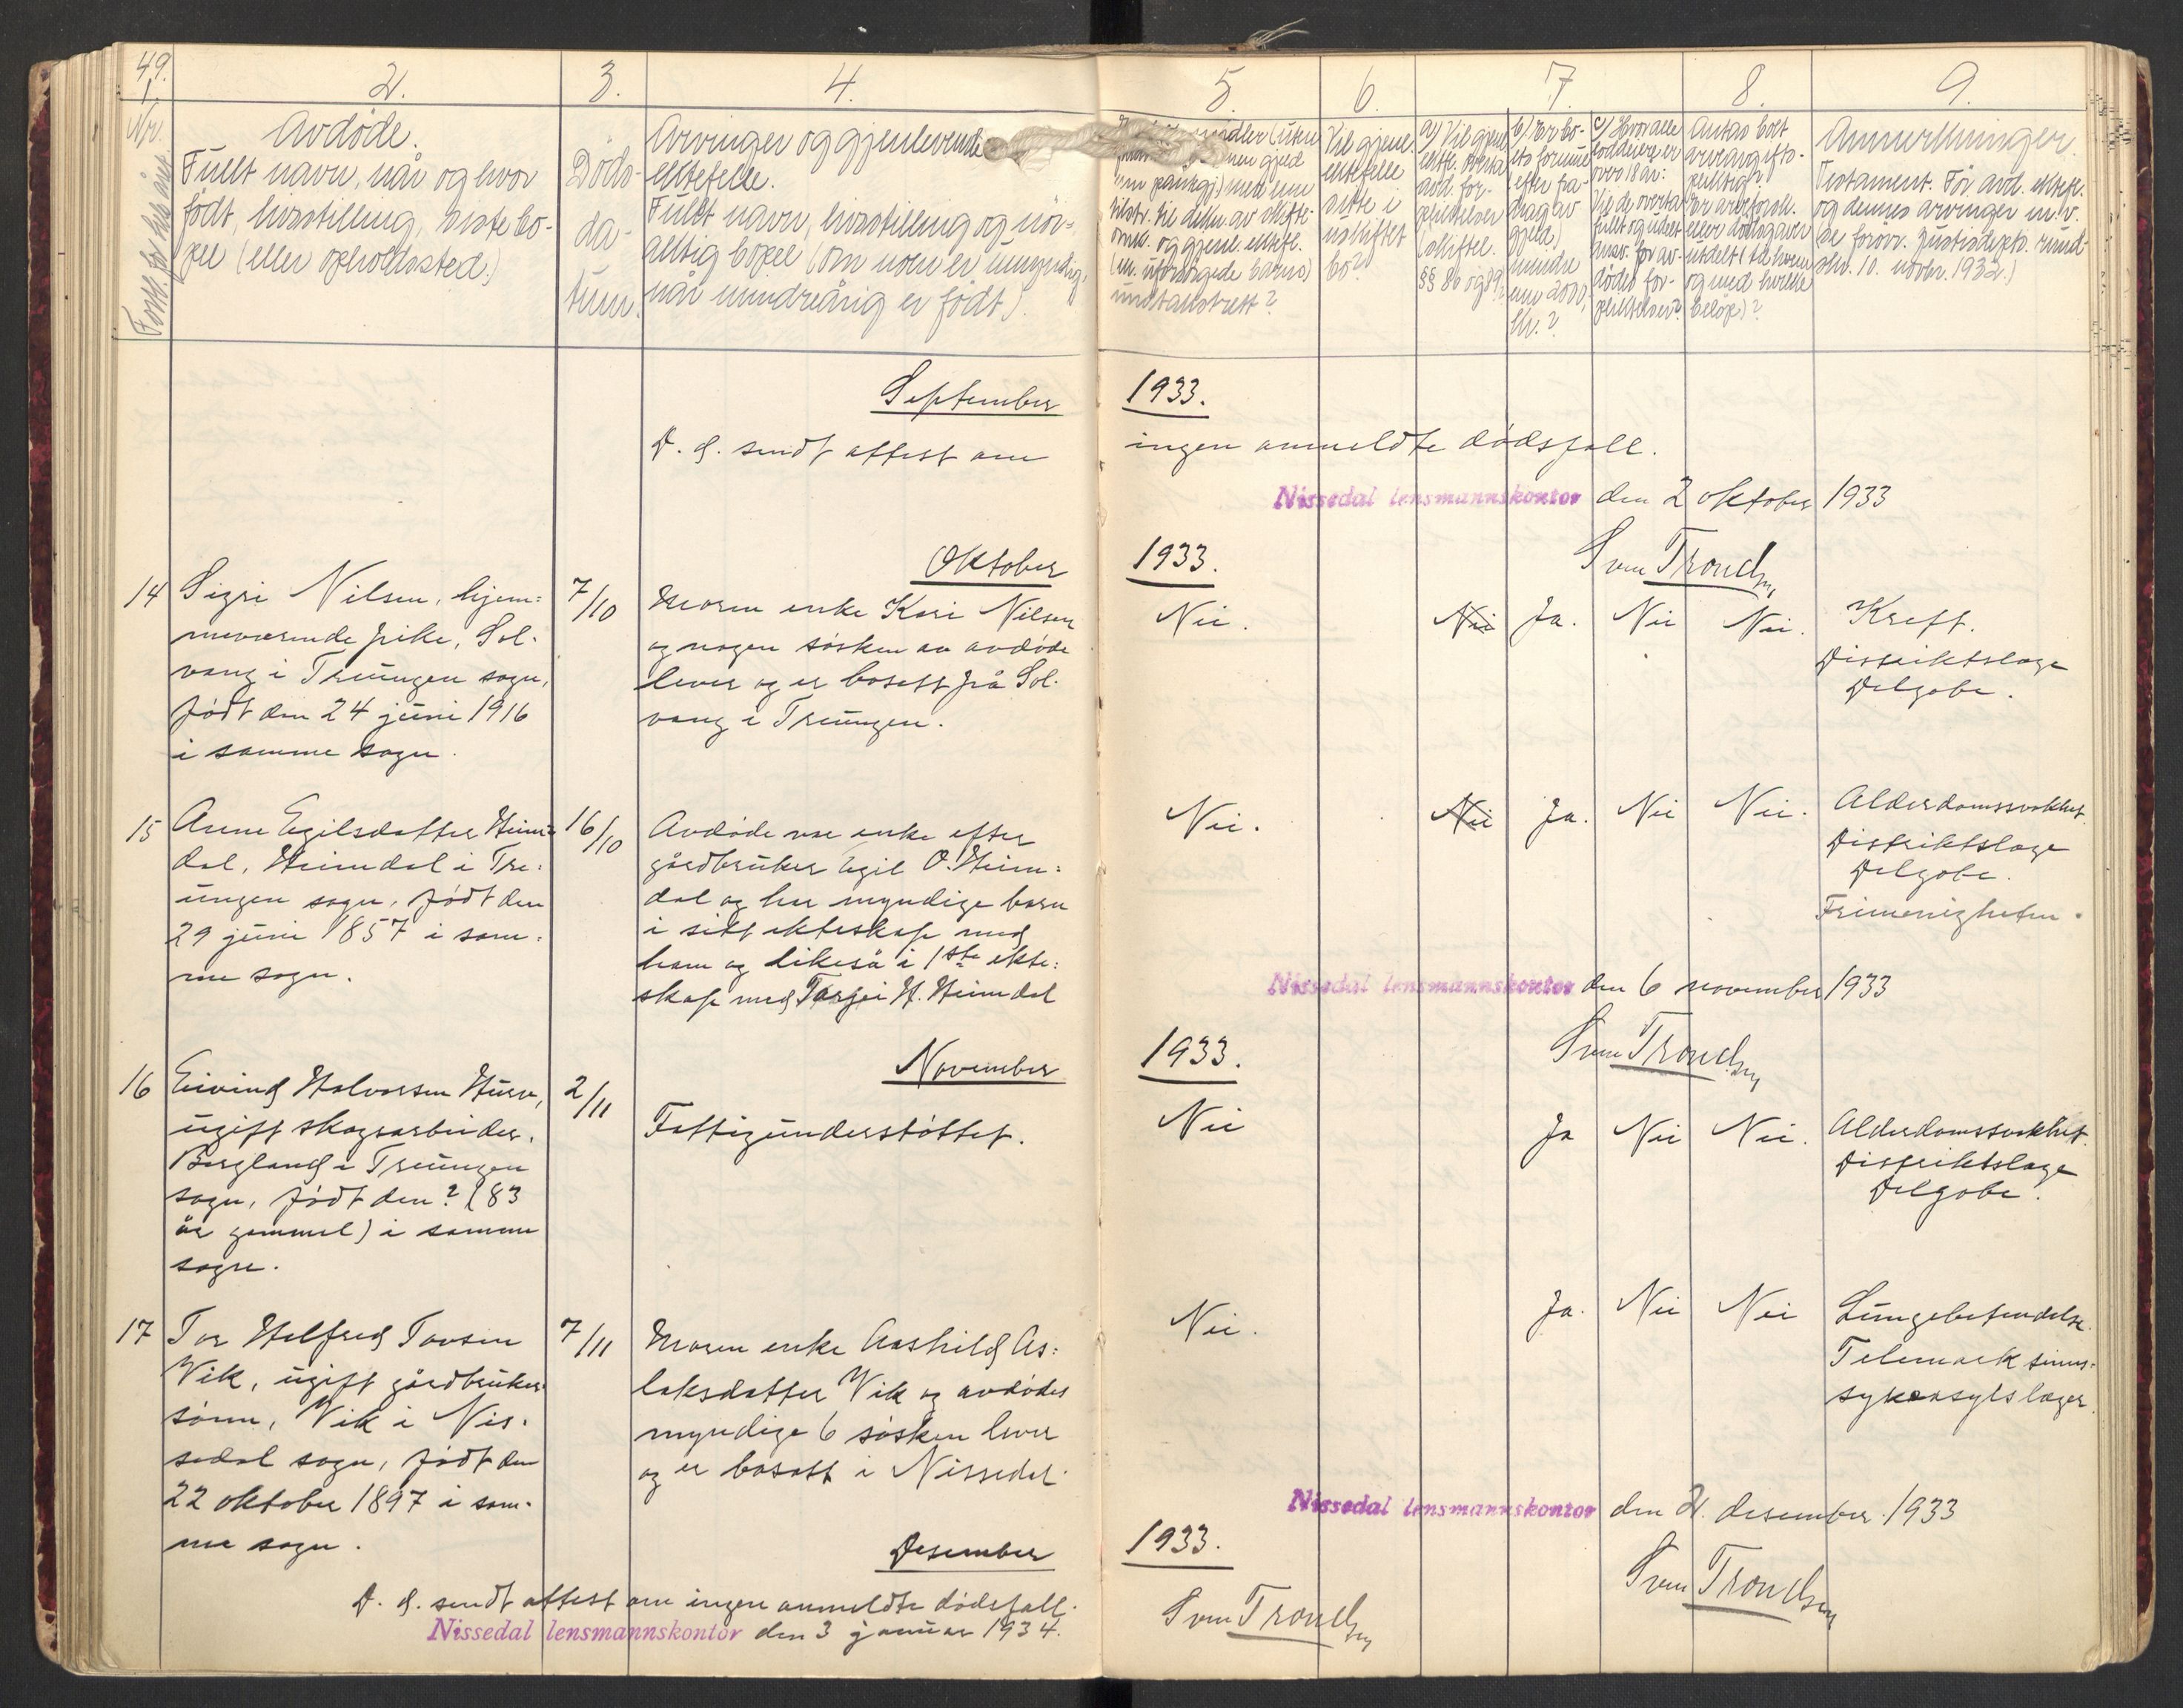 49.
1.
Nr.
Fortl. for hvert år
2.
Avdöde.
Fullt navn, når og hvor
födt, livsstilling, siste bo-
pel (eller opholdssted.)
3.
Döds-
da-
tum.
4.
Arvinger og gjenlevende
ektefelle.
Fullt navn, livsstilling og nöi-
aktig bopel (om noen er umyndig,
når mindreårig er födt).
5.
midler (uten
gjeld
enn pantegj.) med mere
tilstr. til dekn. av skifte-
omk. og gjenl. ektef.
(m. uforsörgede barns)
undtaksrett?
6.
Vil gjenl.
ektefelle
sitte i
uskiftet
bo?
7.
a) Vil gjenl.
ektef. overta
avd. for-
pliktelser
(skiftel.
§§ 80 og 89)
b) Er bo-
ets formue
(efter fra-
drag av
gjeld)
mindre
enn 2000
kr.?
c) Hvor alle
loddeiere er
over 18 år:
Vil de overta
fullt og udelt
ansv. for av-
dödes for-
pliktelser?
8.
Antas boet
arveavgifts-
pliktig?
Er arveforsk.
eller dödsgaver
utdelt (til hvem
og med hvilke
belöp)?
9.
Anmerkninger.
Testament. För avd. ektef.
og dennes arvinger m.v.
Se forövr. Justisdepts. rund-
skr. 10. novbr. 1932.)
September 1933.
D. d. sendt attest om ingen anmeldte dödsfall.
Nissedal lensmannskontor den 2 oktober 1933
Sven Trondsen
Oktober 1933.
14
Sigri Nilsen, hjem=
meværende pike, Sol-
vang i Treungen sogn,
födt den 24 juni 1916
i samme sogn.
7/10
Moren enke Kari Nilsen
og nogen sösken av avdöde
lever og er bosatt på Sol-
vang i Treungen.
Nei.
Nei
Ja.
Nei
Nei.
Kreft.
Distriktslæge
Delgobe.
15
Anne Egilsdatter Heim=
dal, Heimdal i Tre=
ungen sogn, födt den
29 juni 1857 i sam=
me sogn.
16/10
Avdöde var enke efter
gårdbruker Egil O. Heim=
dal og har myndige barn
i sitt ekteskap med
ham og likeså i 1ste ekte=
skap med Tarjei H. Heimdal
Nei.
Nei
Ja.
Nei
Nei.
Alderdomssvakhet.
Distriktslæge
Delgobe.
Frimenigheten.
Nissedal lensmannskontor den 6 november 1933
Sven Trondsen
November 1933.
16
Eivind Halvorsen
ugift skogsarbeider,
Bergland i Treungen
sogn, födt den ? (83
år gammel) i samme
sogn.
2/11
Fattigunderstöttet.
Nei
Ja
Nei
Nei.
Alderdomssvakhet.
Distriktslæge
Delgobe.
17
Tor Halfred Tovsen
Vik, ugift gårdbruker
sönn, Vik i Nis-
sedal sogn, födt den
22 oktober 1897 i sam-
me sogn.
7/11
Moren enke Aashild As=
laksdatter Vik og avdödes
myndige 6 sösken lever
og er bosatt i Nissedal.
Nei.
Ja.
Nei
Nei
Lungebetendelse.
Telemark sinns-
sykeasyls læger.
Nissedal lensmannskontor den 2. desember 1933
Sven Trondsen
Desember 1933.
D. d. sendt attest om ingen anmeldte dödsfall.
Nissedal lensmannskontor den 3 januar 1934.
Sven Trondsen